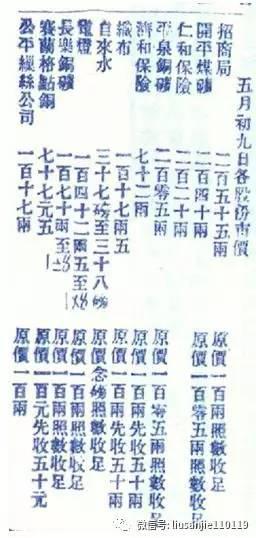 五月初九日各股份市價
招商局 二百五十五兩 原價一百兩照數收足
開平煤礦 二百四十兩 原價一百零五兩照數收足
仁和保險 二百二十兩
平泉銅礦 二百零五兩 原價一百零五兩照數收足
濟和保險 七十二兩 原價一百兩先收五十兩
織布 一百十七兩五 原價一百兩先收五十兩
自來水 三十七磅至三十八磅 原價念磅照數收足
電燈 一百四十二兩五至 原價一百兩照數收足
長樂銅礦 一百七十兩至 原價一百兩照數收足
賽蘭格點銅 七十七元五 原價一百元先收五十元
公平繅絲公司 一百十七兩 原價一百兩
微信号: liusanjie110119